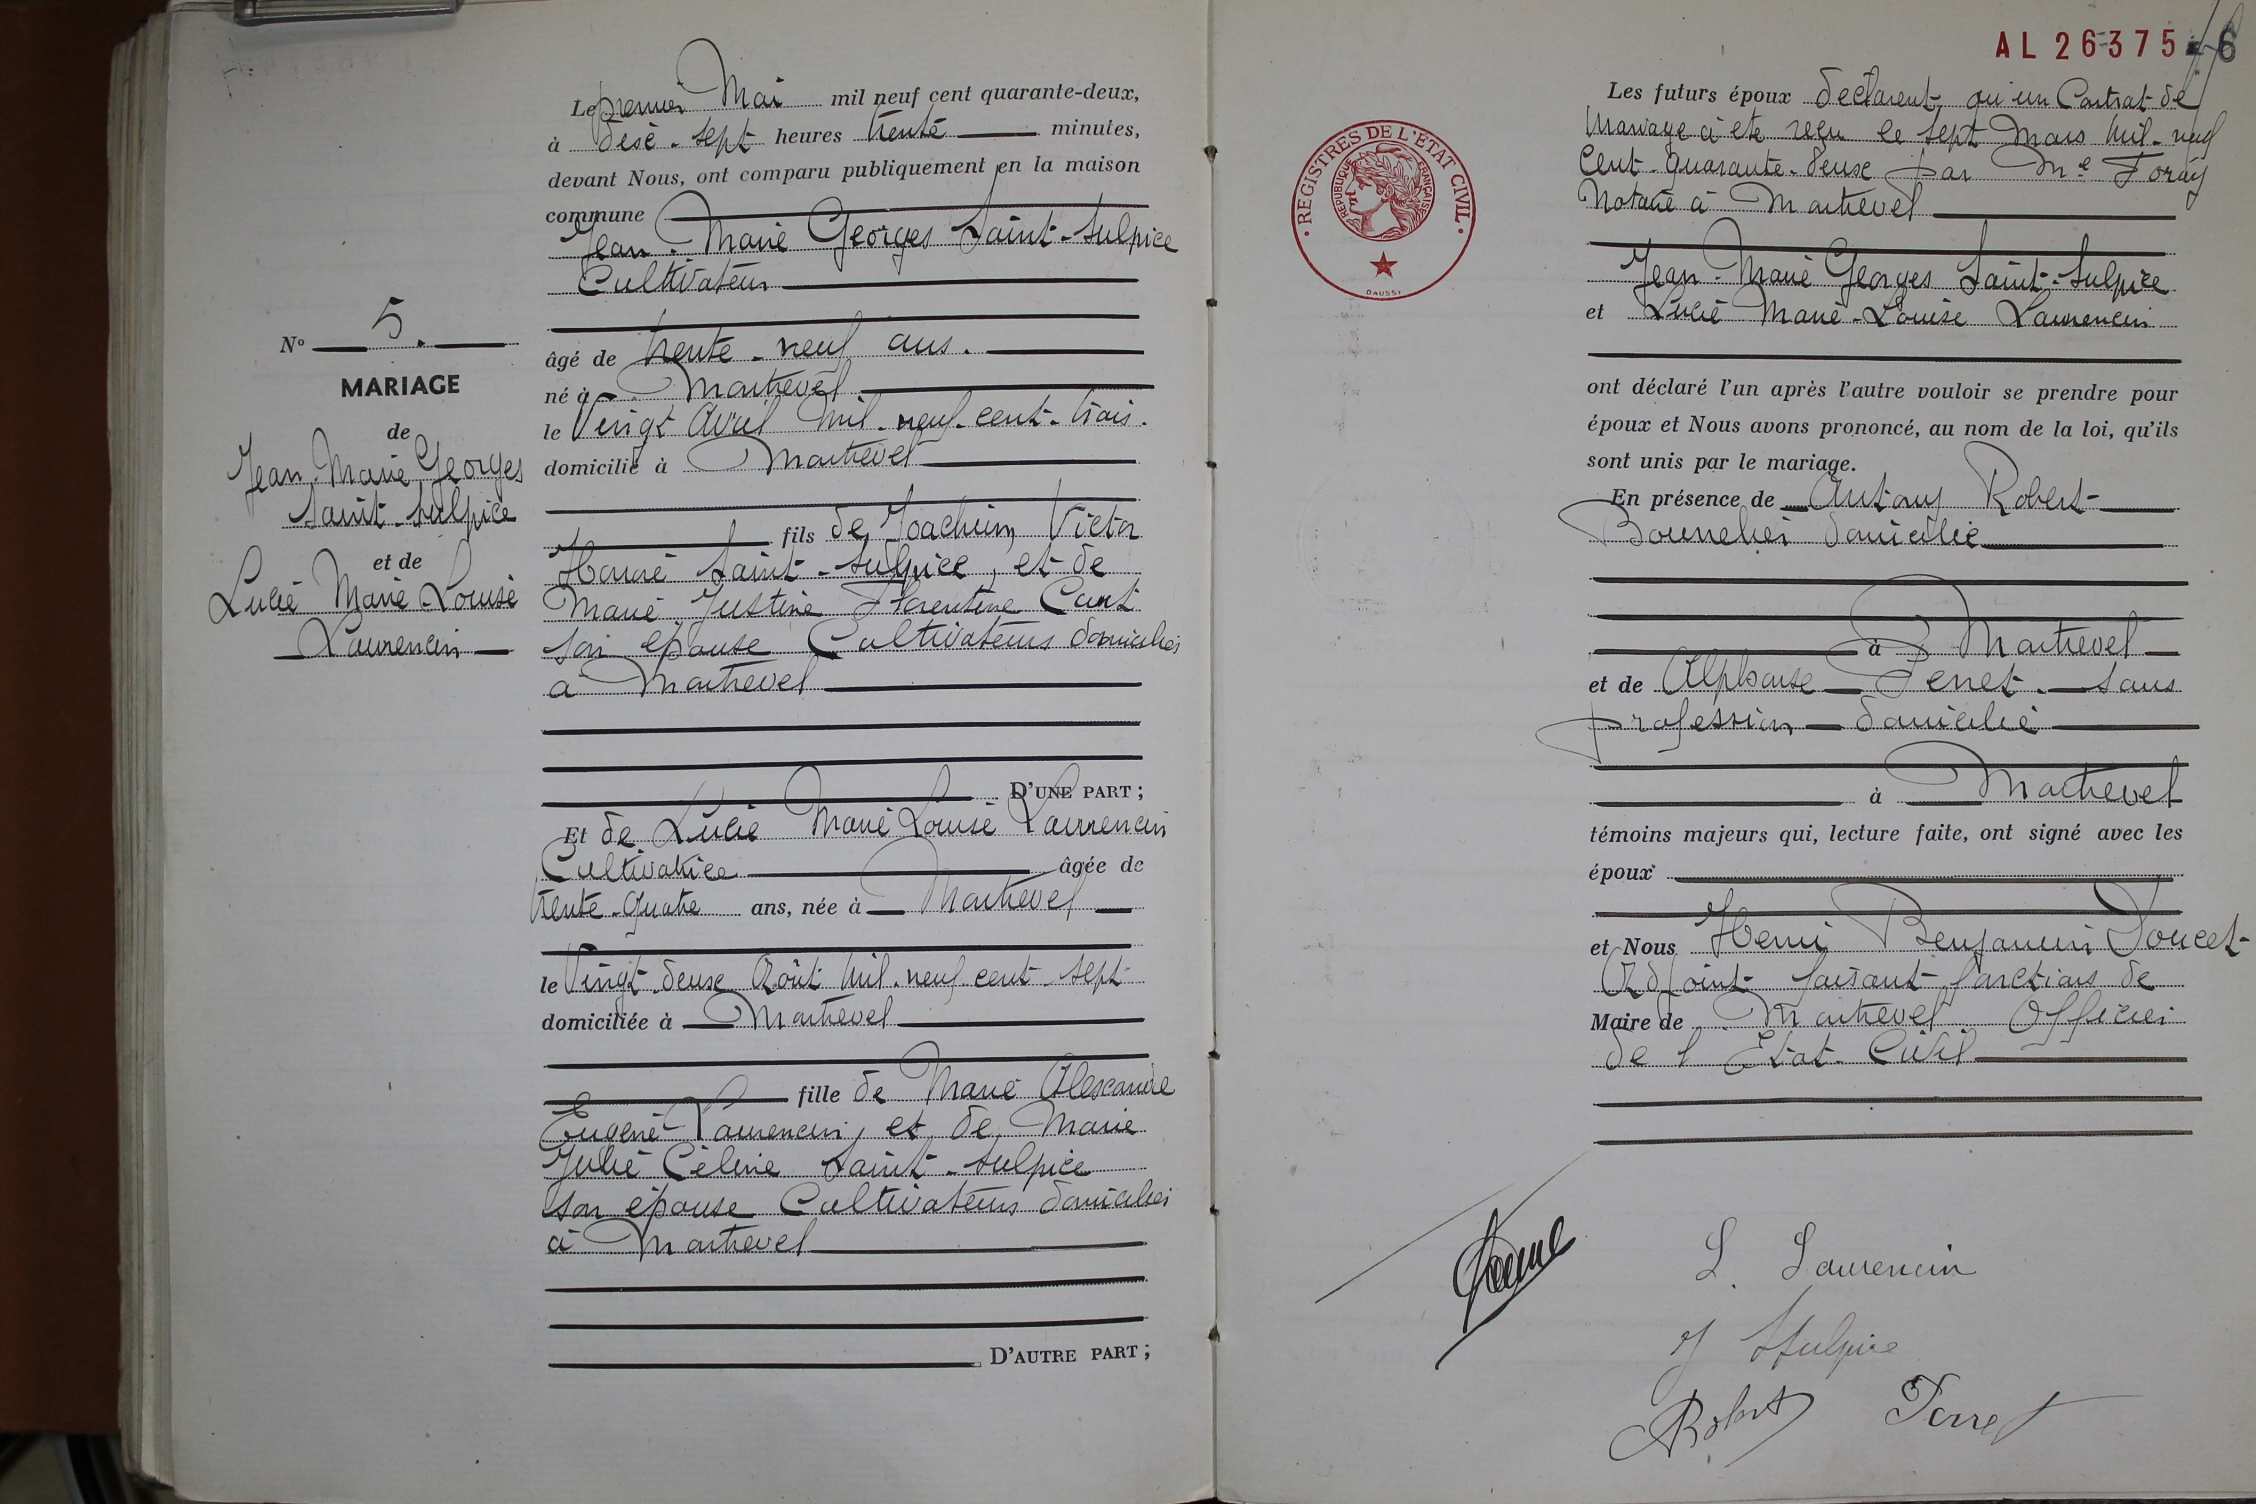 N° 5.
MARIAGE
de
Jean-Marie Georges
Saint-Sulpice
et de
Lucie Marie-Louise
Laurencin
Le premier Mai mil neuf cent quarante-deux,
à dese-sept heures trente minutes,
devant Nous, ont comparu publiquement en la maison
commune
Jean-Marie Georges Saint-Sulpice
Cultivateur
âgé de trente-neuf ans.
né à Montrevel
le Vingt Avril mil-neuf-cent-trois.
domicilié à Montrevel
fils de Joachim Victor
Honoré Saint-Sulpice, et de
Marie Justine Florentine
son épouse Cultivateurs domiciliés
à Montrevel
D'UNE PART ;
Et de Lucie Marie Louise Laurencin
Cultivatrice âgée de
trente-quatre ans, née à Montrevel
le Vingt-deux Août mil-neuf-cent-sept
domiciliée à Montrevel
fille de Marie Alexandre
Eugène Laurencin, et de Marie
Julie Céline Saint-Sulpice
son épouse Cultivateurs domiciliés
à Montrevel
D'AUTRE PART ;
AL 26375
6
REGISTRES DE L'ÉTAT CIVIL
REPUBLIQUE FRANÇAISE
DAUSSY
Les futurs époux déclarent qu'un Contrat de
Mariage a été reçu le sept Mars mil-neuf
cent-quarante-deux par Me Foray
Notaire à Montrevel
Jean-Marie Georges Saint-Sulpice
et Lucie Marie-Louise Laurencin
ont déclaré l'un après l'autre vouloir se prendre pour
époux et Nous avons prononcé, au nom de la loi, qu'ils
sont unis par le mariage.
En présence de Antony Robert
Bourrelier domicilié
à Montrevel
et de Alphonse Perret sans
profession domicilié
à Montrevel
témoins majeurs qui, lecture faite, ont signé avec les
époux
et Nous Henri Benjamin Doucet
Adjoint faisant fonctions de
Maire de Montrevel Officier
de l'Etat-Civil
L. Laurencin
J StSulpice
ARobert Perret